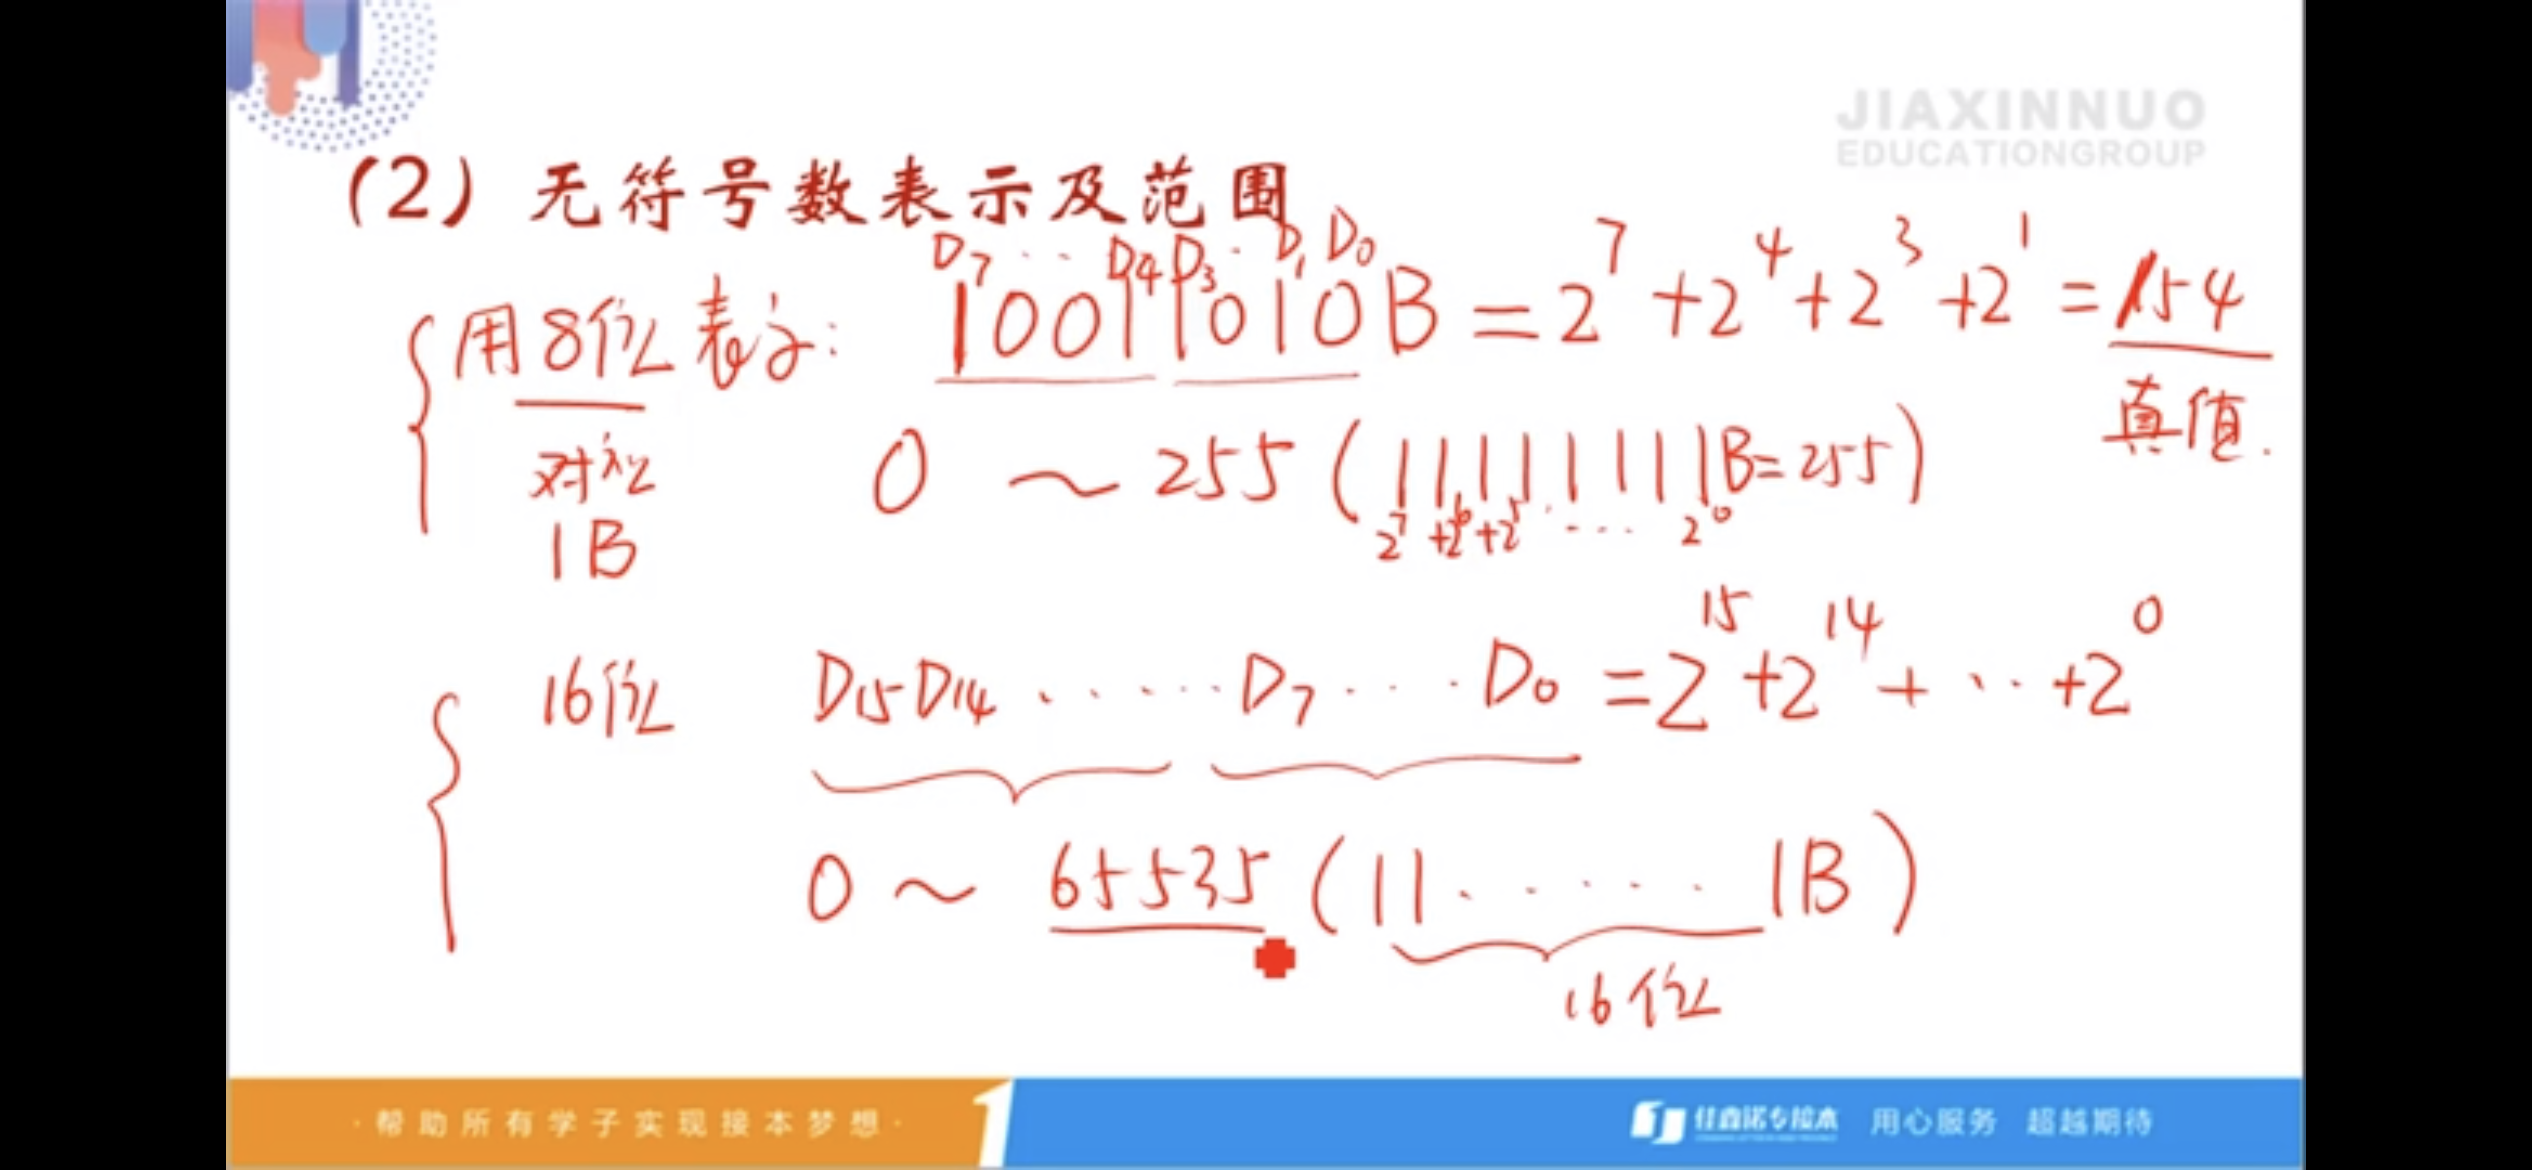 JIAXINNUO
EDUCATIONGROUP
(2) 无符号数表示及范围
D₇ ·· D₄ D₃ · D₁ D₀
用8位表示: 10011010B = 2⁷ + 2⁴ + 2³ + 2¹ = 154
对应
1B
真值.
0 ~ 255 (11111111B=255)
2⁷ +2⁶ +2⁵ ····· 2⁰
16位 D₁₅D₁₄ ····· D₇ ··· D₀ = 2¹⁵ + 2¹⁴ + ··· + 2⁰
0 ~ 65535 (11 ····· 1B)
16位
·帮助所有学子实现接本梦想·
1
佳鑫诺专接本 用心服务 超越期待